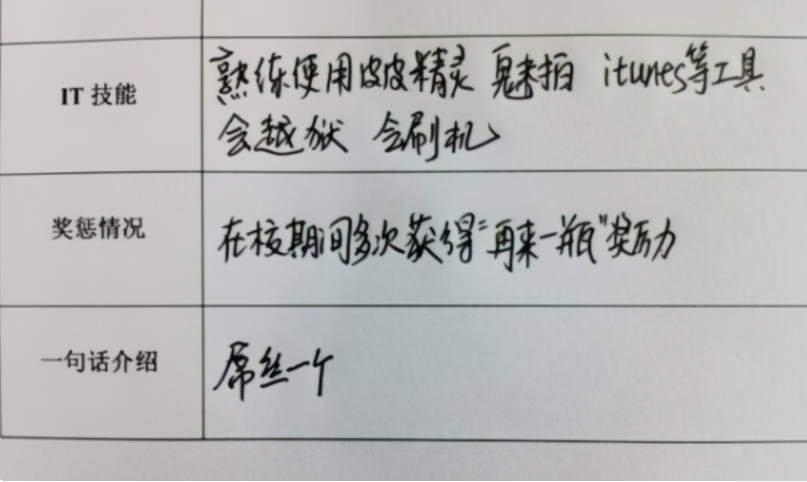 IT 技能
熟练使用皮皮精灵 魅拍 itunes等工具
会越狱 会刷机
奖惩情况
在校期间多次获得"再来一瓶"奖励
一句话介绍
屌丝一个